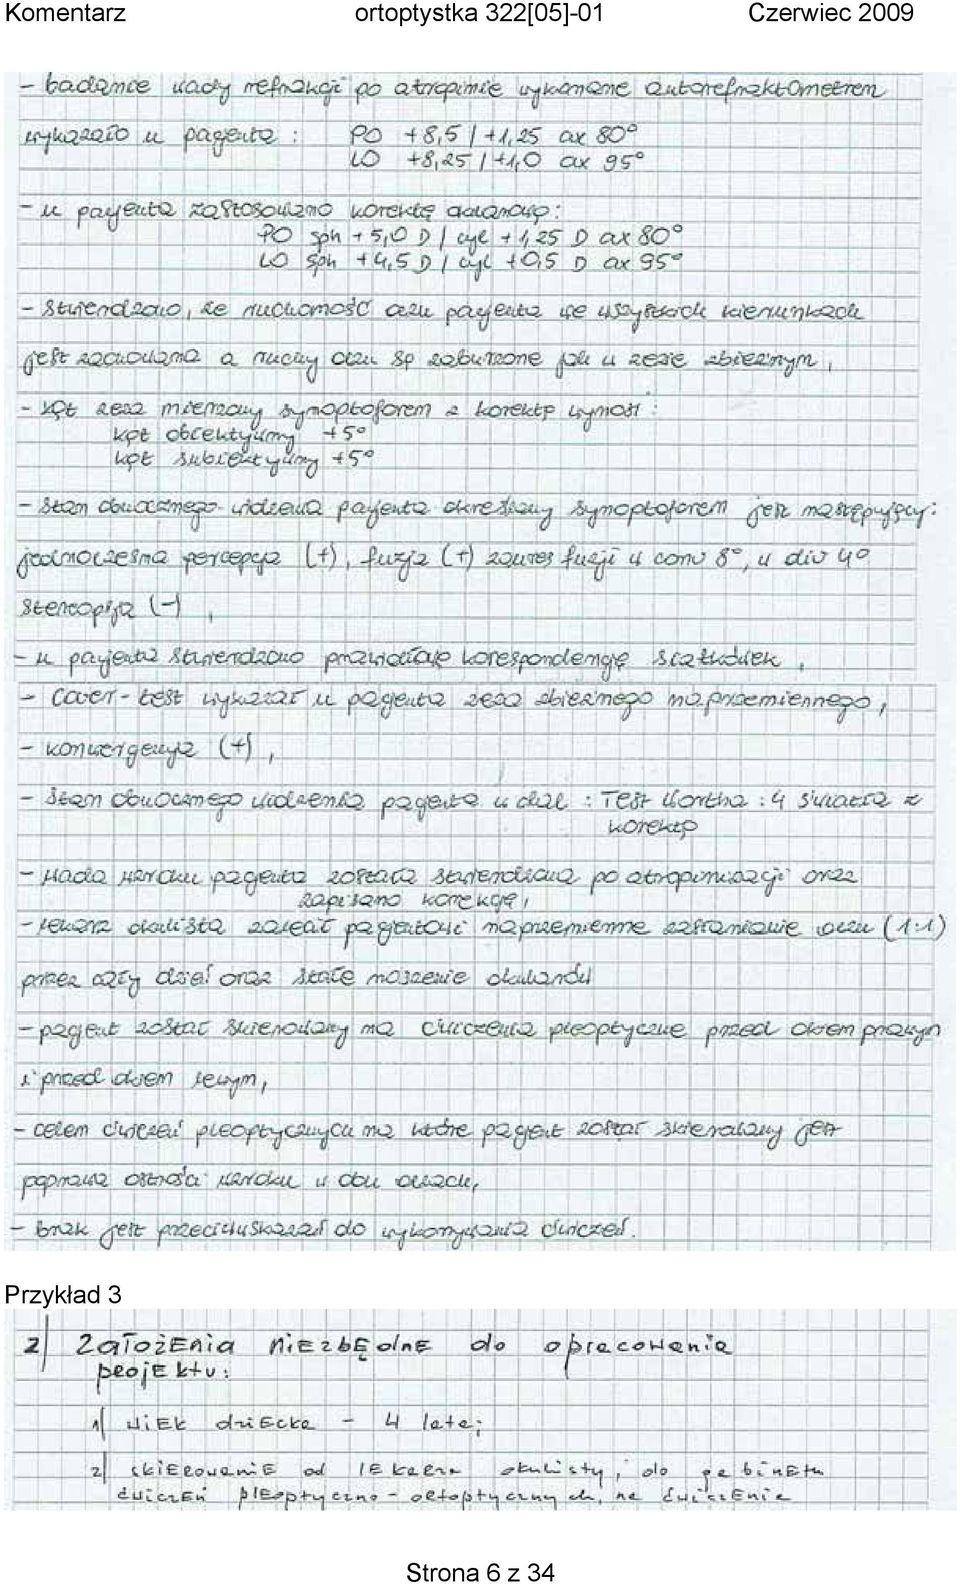 Komentarz ortoptystka 322[05]-01 Czerwiec 2009
- badanie wady refrakcji po atropinie wykonane autorefraktometrem
wykazało u pacjenta : PO +8,5 / +1,25 ax 80°
LO +8,25 / +1,0 ax 95°
- u pacjenta zastosowano korektę okularową :
PO sph + 5,0 D / cyl + 1,25 D ax 80°
LO sph + 4,5 D / cyl + 0,5 D ax 95°
- stwierdzono, że ruchomość oczu pacjenta we wszystkich kierunkach
jest zachowana a ruchy oczu są zaburzone jak w zezie zbieżnym,
- kąt zeza mierzony synoptoforem z korektą wynosi :
kąt obiektywny +5°
kąt subiektywny +5°
- stan obuocznego widzenia pacjenta określany synoptoforem jest następujący:
jednoczesna percepcja (+), fuzja (+) zakres fuzji w conv 8°, w div 4°
stereopsja (-) ,
- u pacjenta stwierdzono prawidłową korespondencję siatkówek ,
- cover - test wykazał u pacjenta zeza zbieżnego naprzemiennego,
- konwergencja (+) ,
- stan obuocznego widzenia pacjenta w dal : Test Wortha : 4 światła z
korektą
- wada wzroku pacjenta została stwierdzona po atropinizacji oraz
zapisano korekcję,
- lekarz okulista zalecał pacjentowi naprzemienne zasłanianie oczu (1:1)
przez cały dzień oraz stałe noszenie okularów
- pacjent został skierowany na ćwiczenia pleoptyczne przed okiem prawym
i przed okiem lewym,
- celem ćwiczeń pleoptycznych na które pacjent został skierowany jest
poprawa ostrości wzroku w obu oczach,
- brak jest przeciwskazań do wykonywania ćwiczeń.
Przykład 3
2) Założenia niezbędne do opracowania
projektu :
1) wiek dziecka - 4 lata;
2) skierowanie od lekarza okulisty, do gabinetu
ćwiczeń pleoptyczno - ortoptycznych, na ćwiczenie
Strona 6 z 34